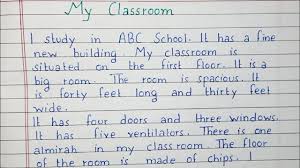 My Classroom
I study in ABC School. It has a fine
new building. My classroom is
situated on the first floor. It is a
big room. The room is spacious. It
is forty feet long and thirty feet
wide.
It has four doors and three windows.
It has five ventilators. There is one
almirah in my class room. The floor
of the room is made of chips. I